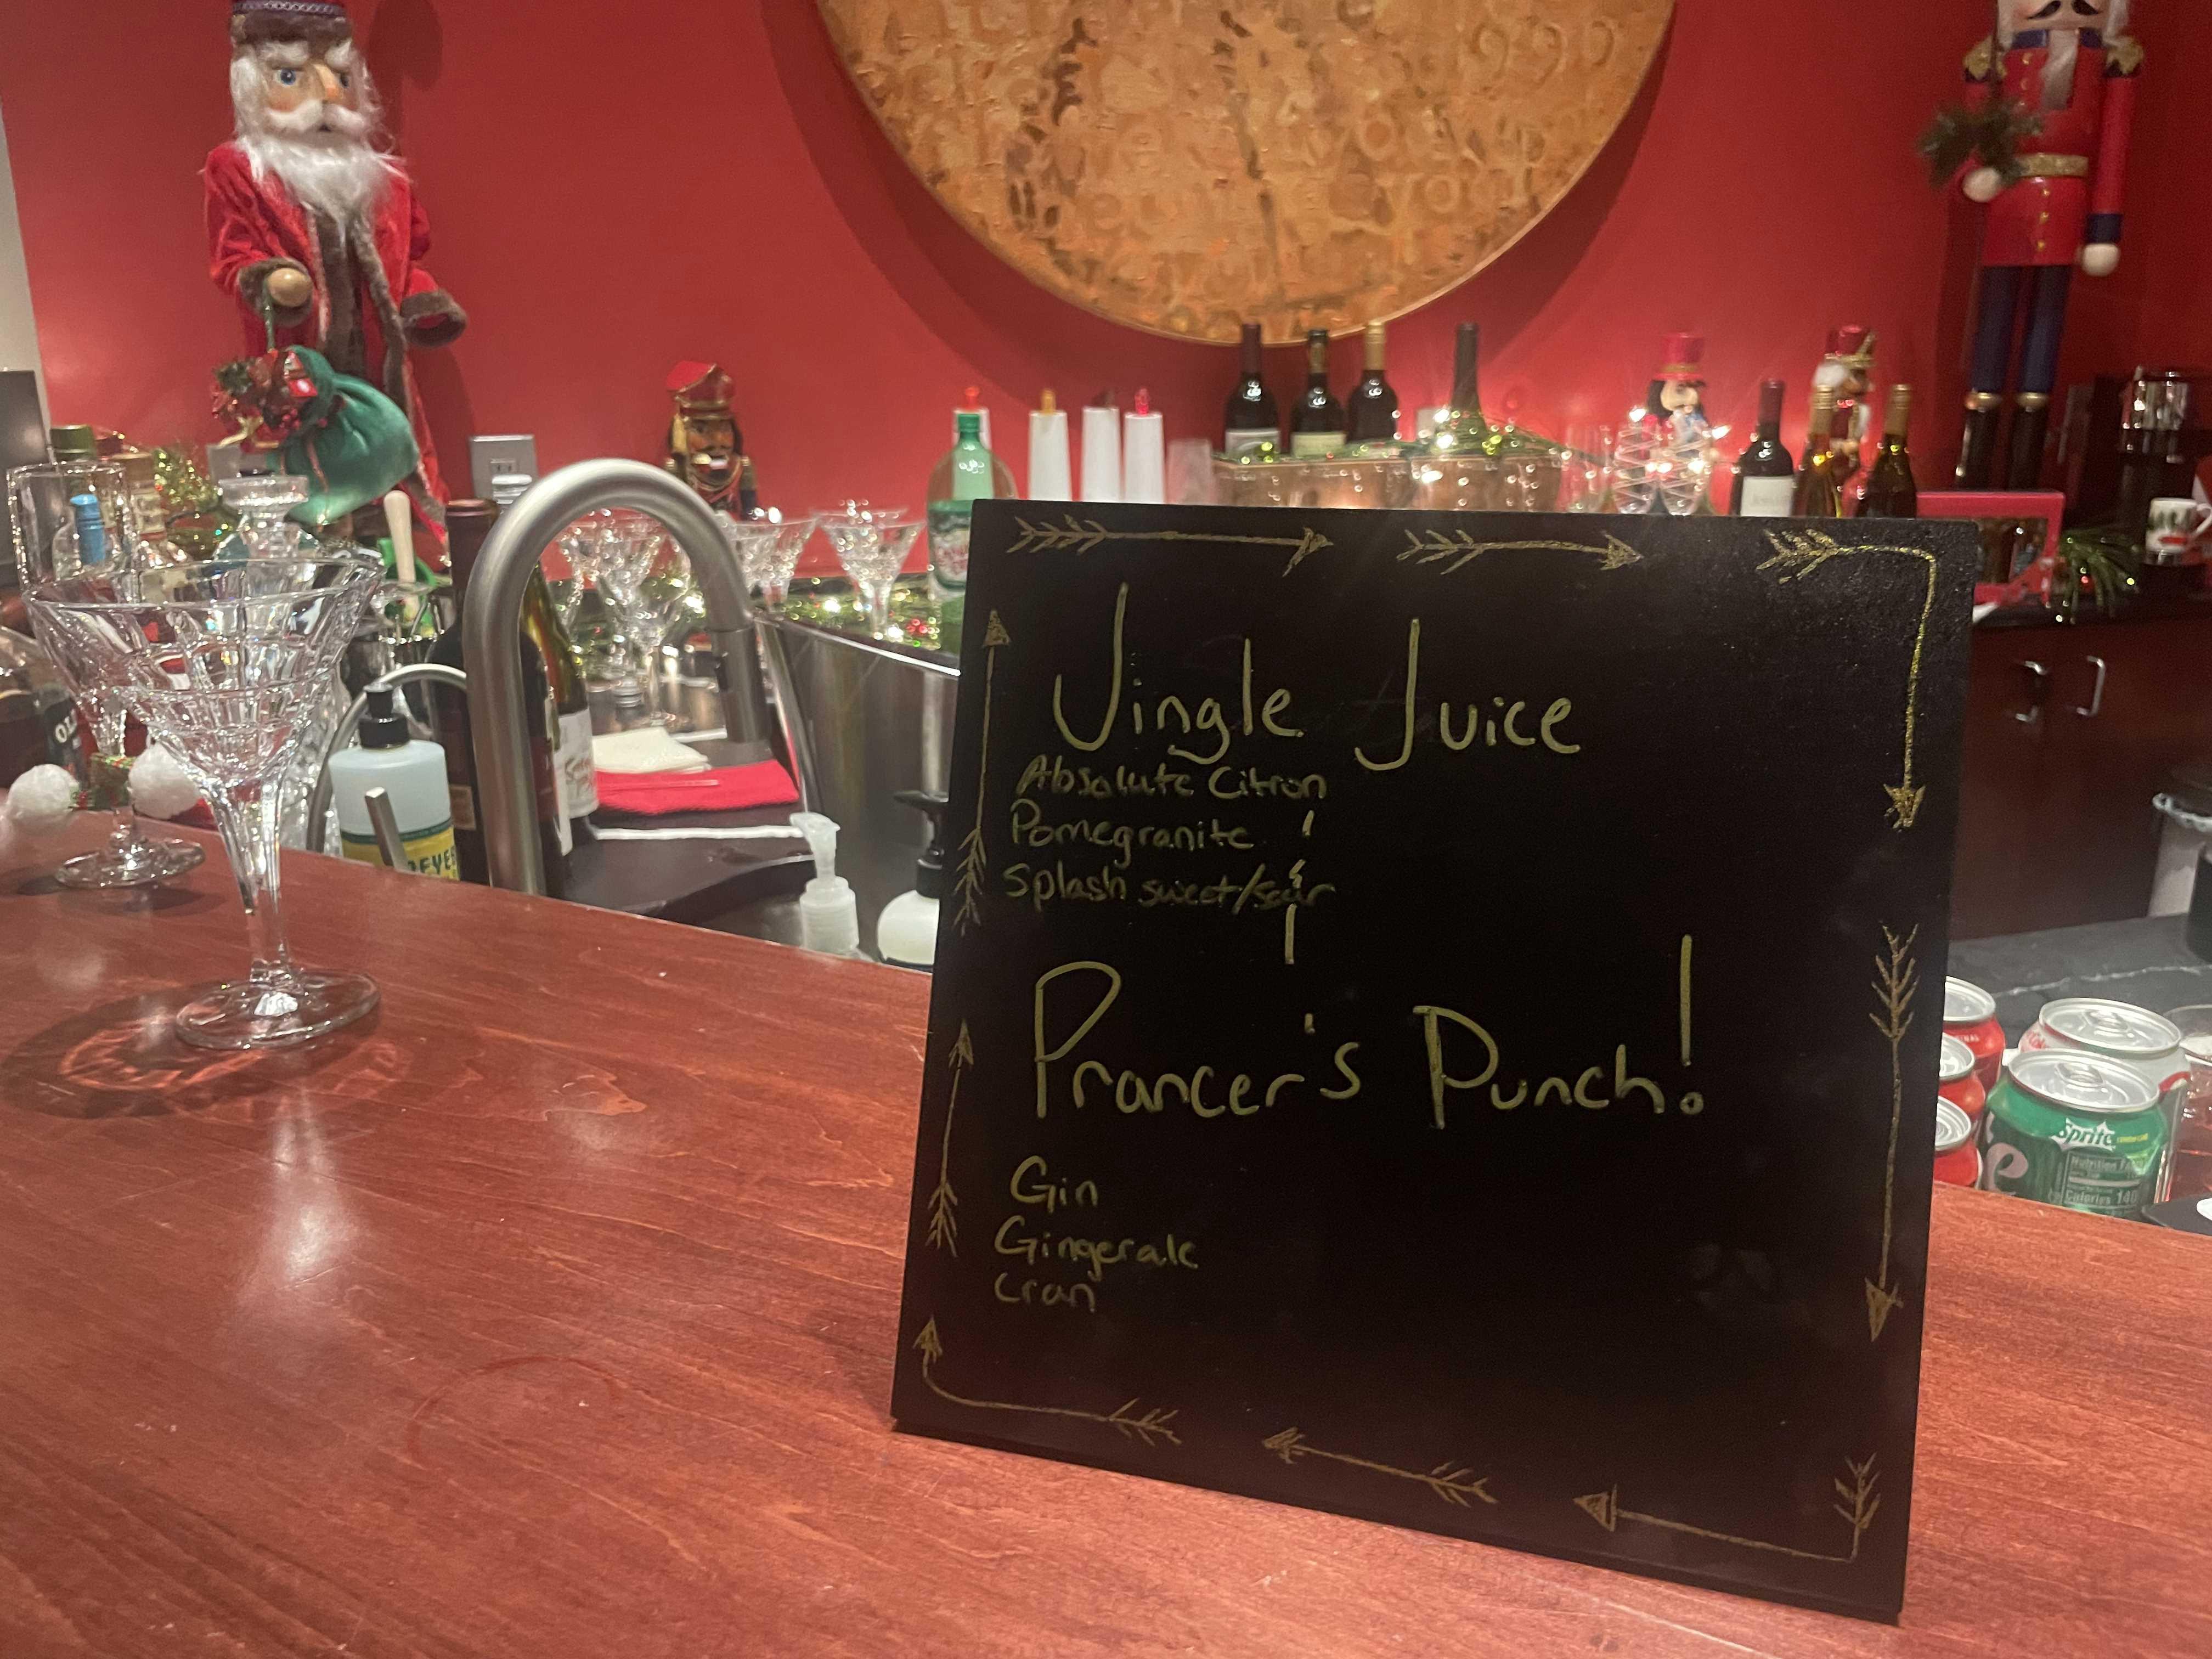 Jingle Juice
Absolute Citron
Pomegranite
Splash sweet/sour
Prancer's Punch!
Gin
Gingerale
Cran
Sprite
Nutrition
Calories 140